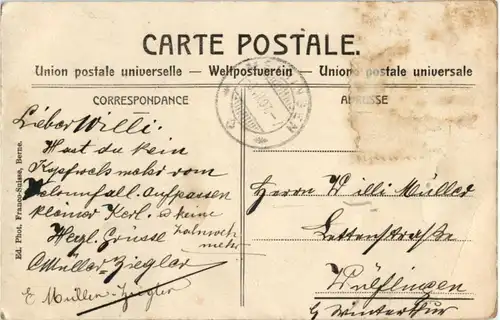 CARTE POSTALE.
Union postale universelle — Weltpostverein — Unione postale universale
CORRESPONDANCE
ADRESSE
Lieber Willi.
Hast du kein
Kopfweh mehr vom
Aufpassen
kleiner Kerl. u keine
Zahnweh
mehr
Herzl. Grüsse
CMüller-Ziegler
E Müller-Ziegler
Ed. Phot. Franco-Suisse, Berne.
Herrn Willi Müller
Lettenstraße
Wülflingen
b/ Winterthur